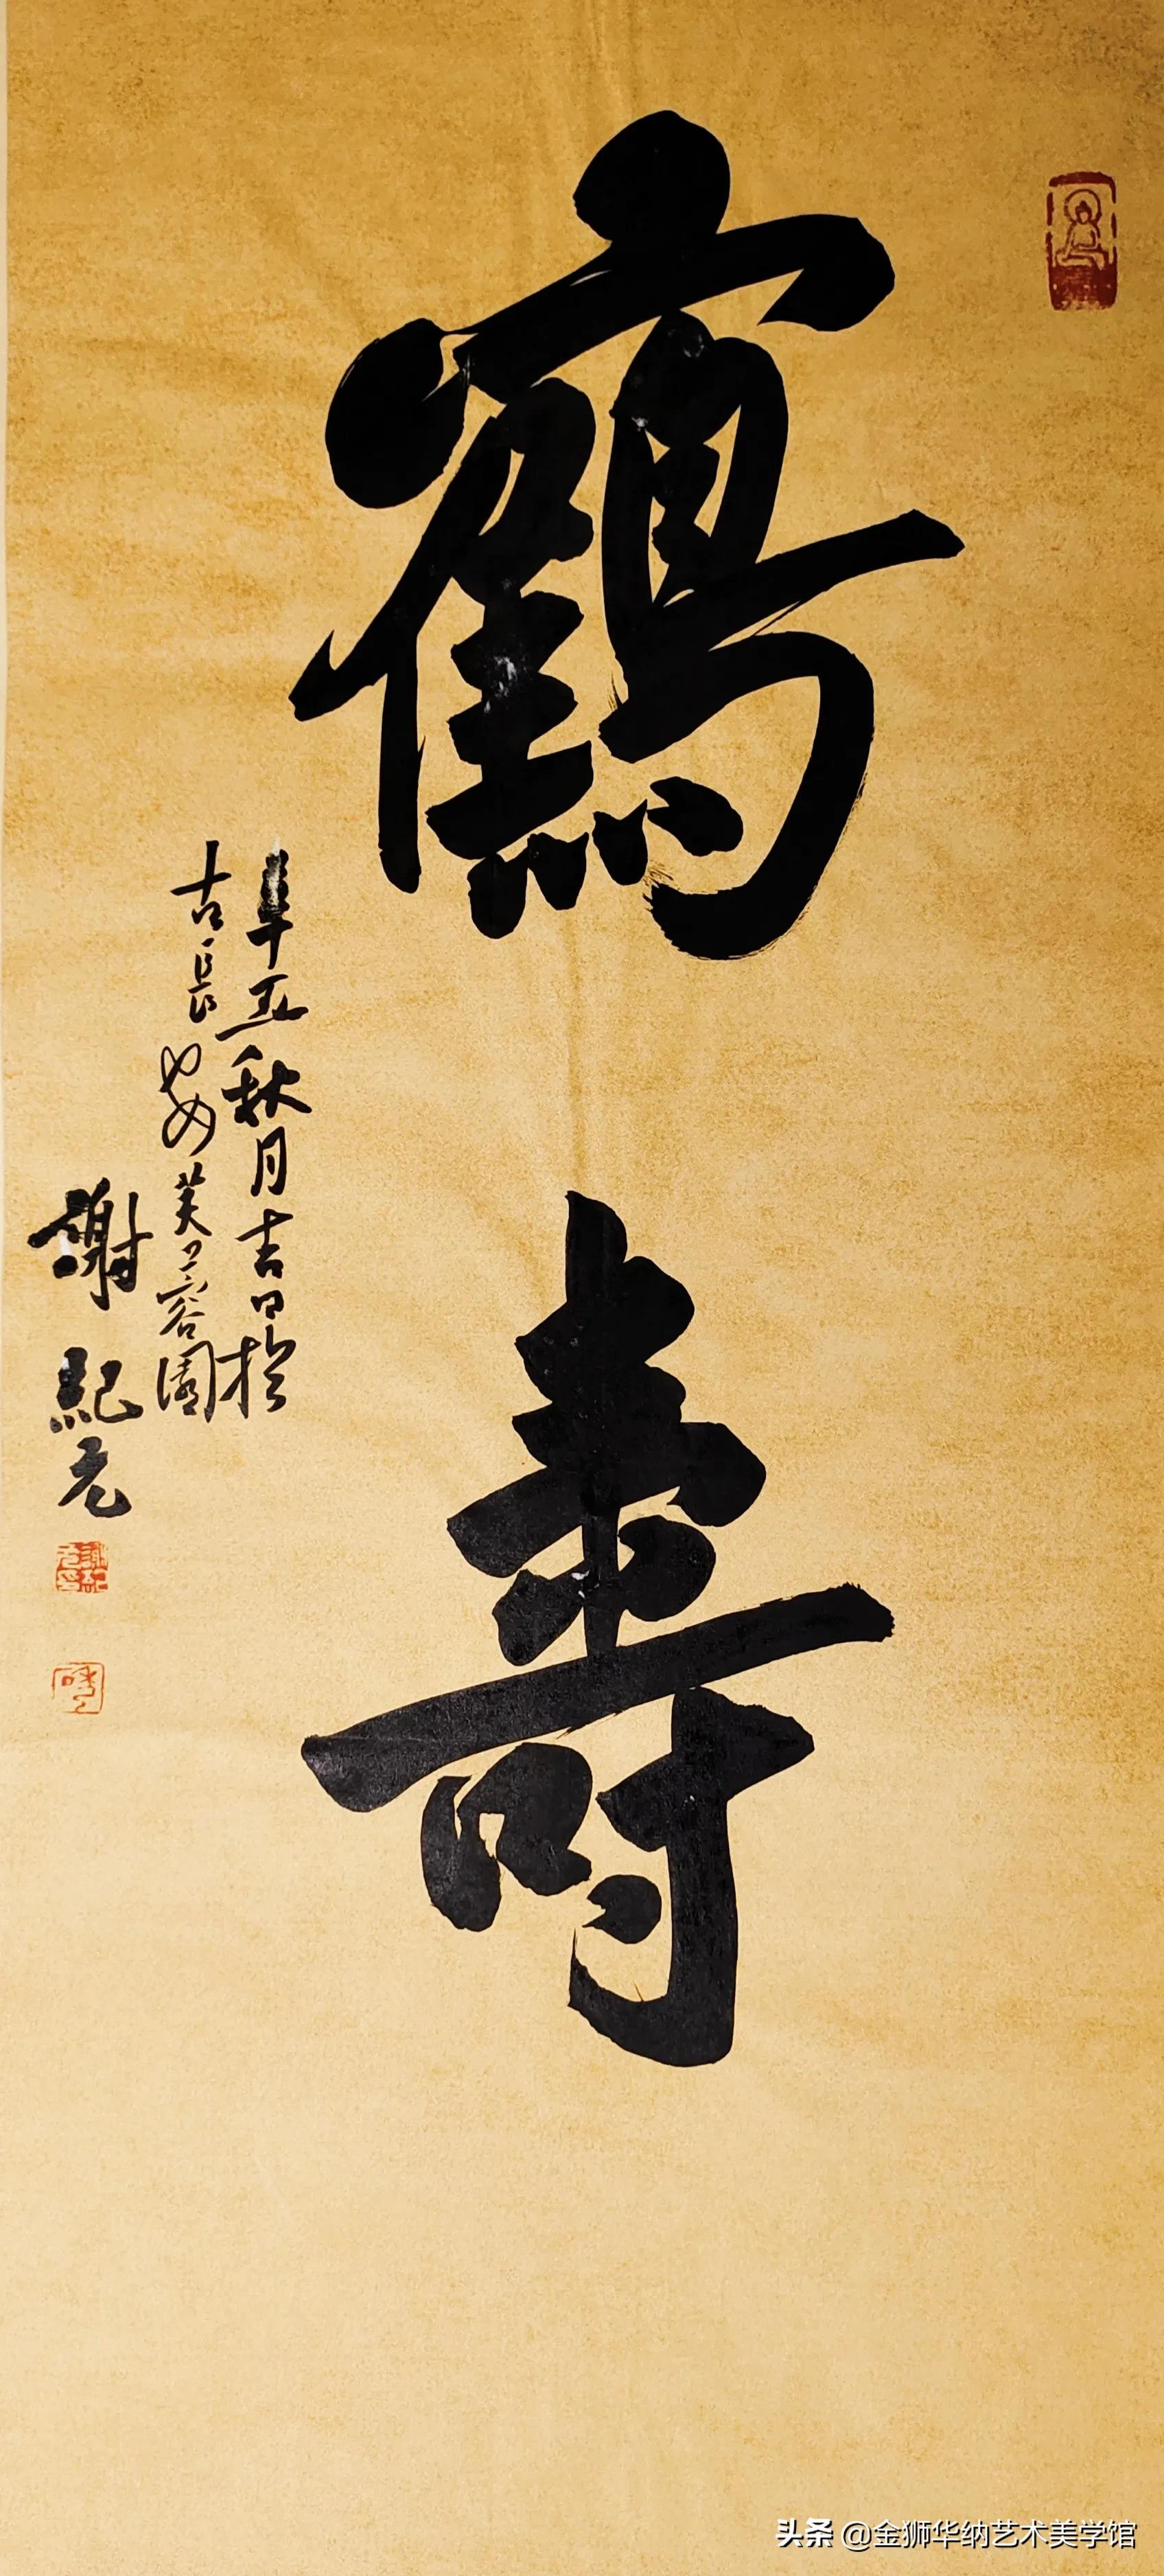 鶴壽
辛丑秋月吉日於
古長安芙蓉園
謝紀元
头条 @金狮华纳艺术美学馆